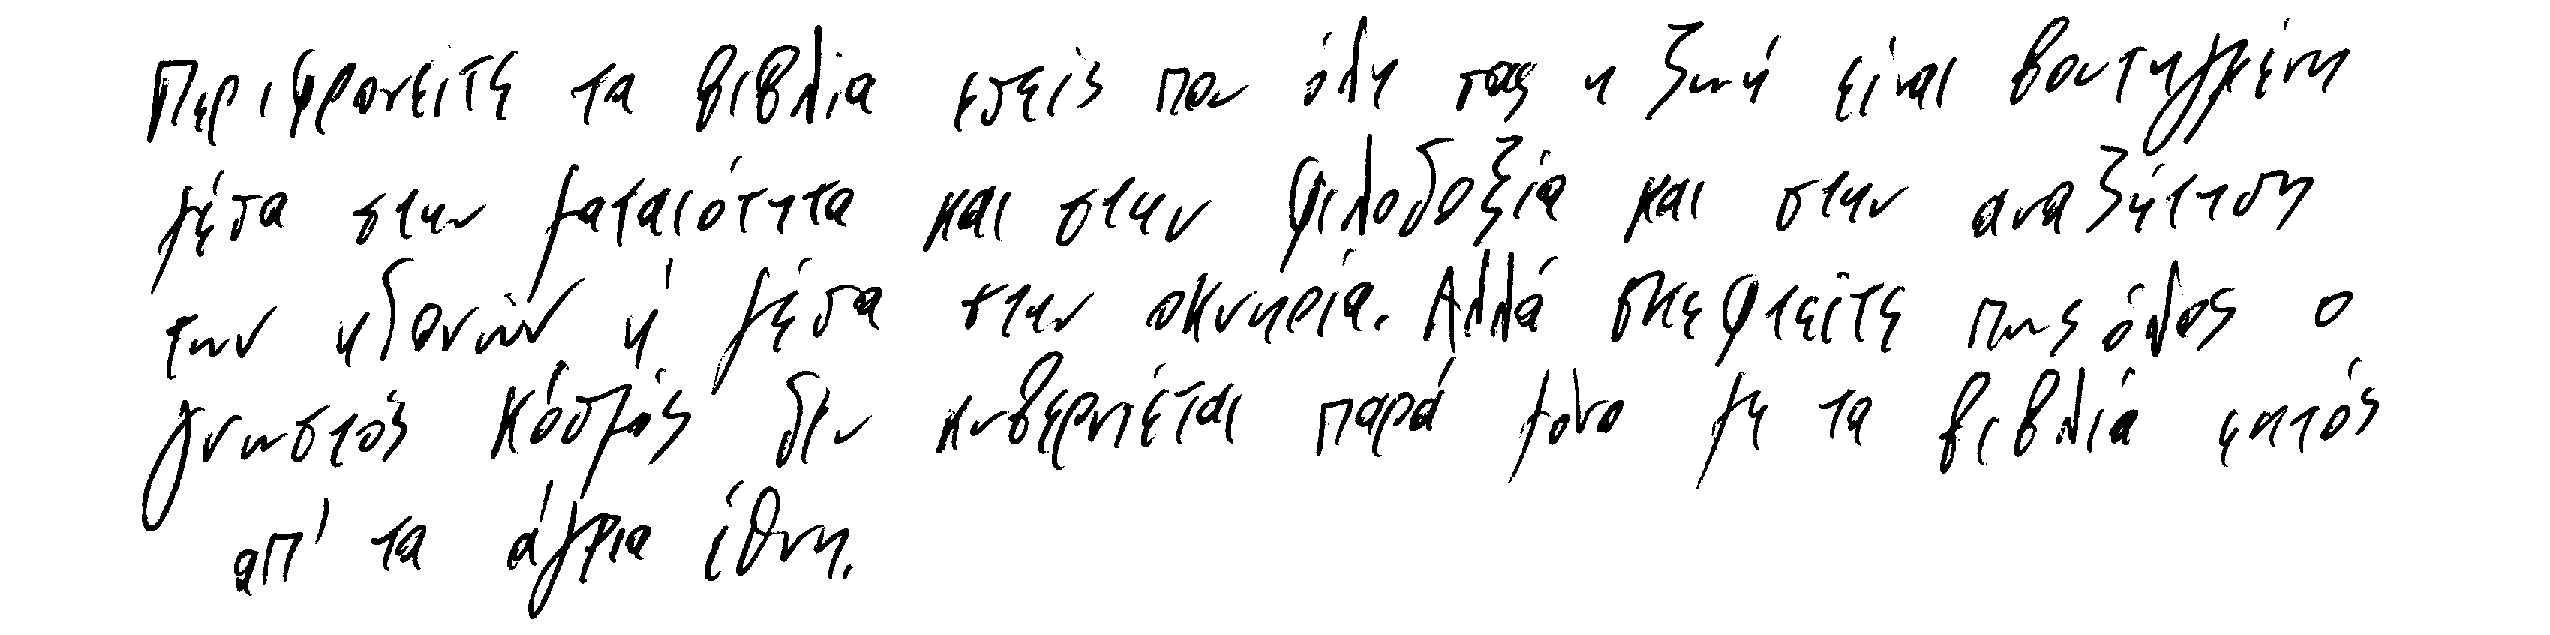 Περιφρονείτε τα βιβλία εσείς που όλη σας η ζωή είναι βουτηγμένη
μέσα στην ματαιότητα και στην φιλοδοξία και στην αναζήτηση
των ηδονών ή μέσα στην οκνηρία. Αλλά σκεφτείτε πως όλος ο
γνωστός κόσμος δεν κυβερνιέται παρά μόνο με τα βιβλία εκτός
απ' τα άγρια έθνη.